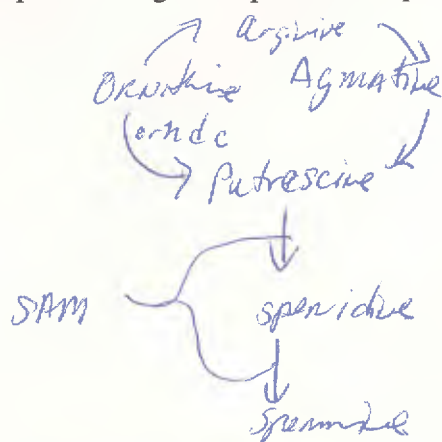 Arginine
Ornithine Agmatine
orndc
Putrescine
SAM spermidine
spermine